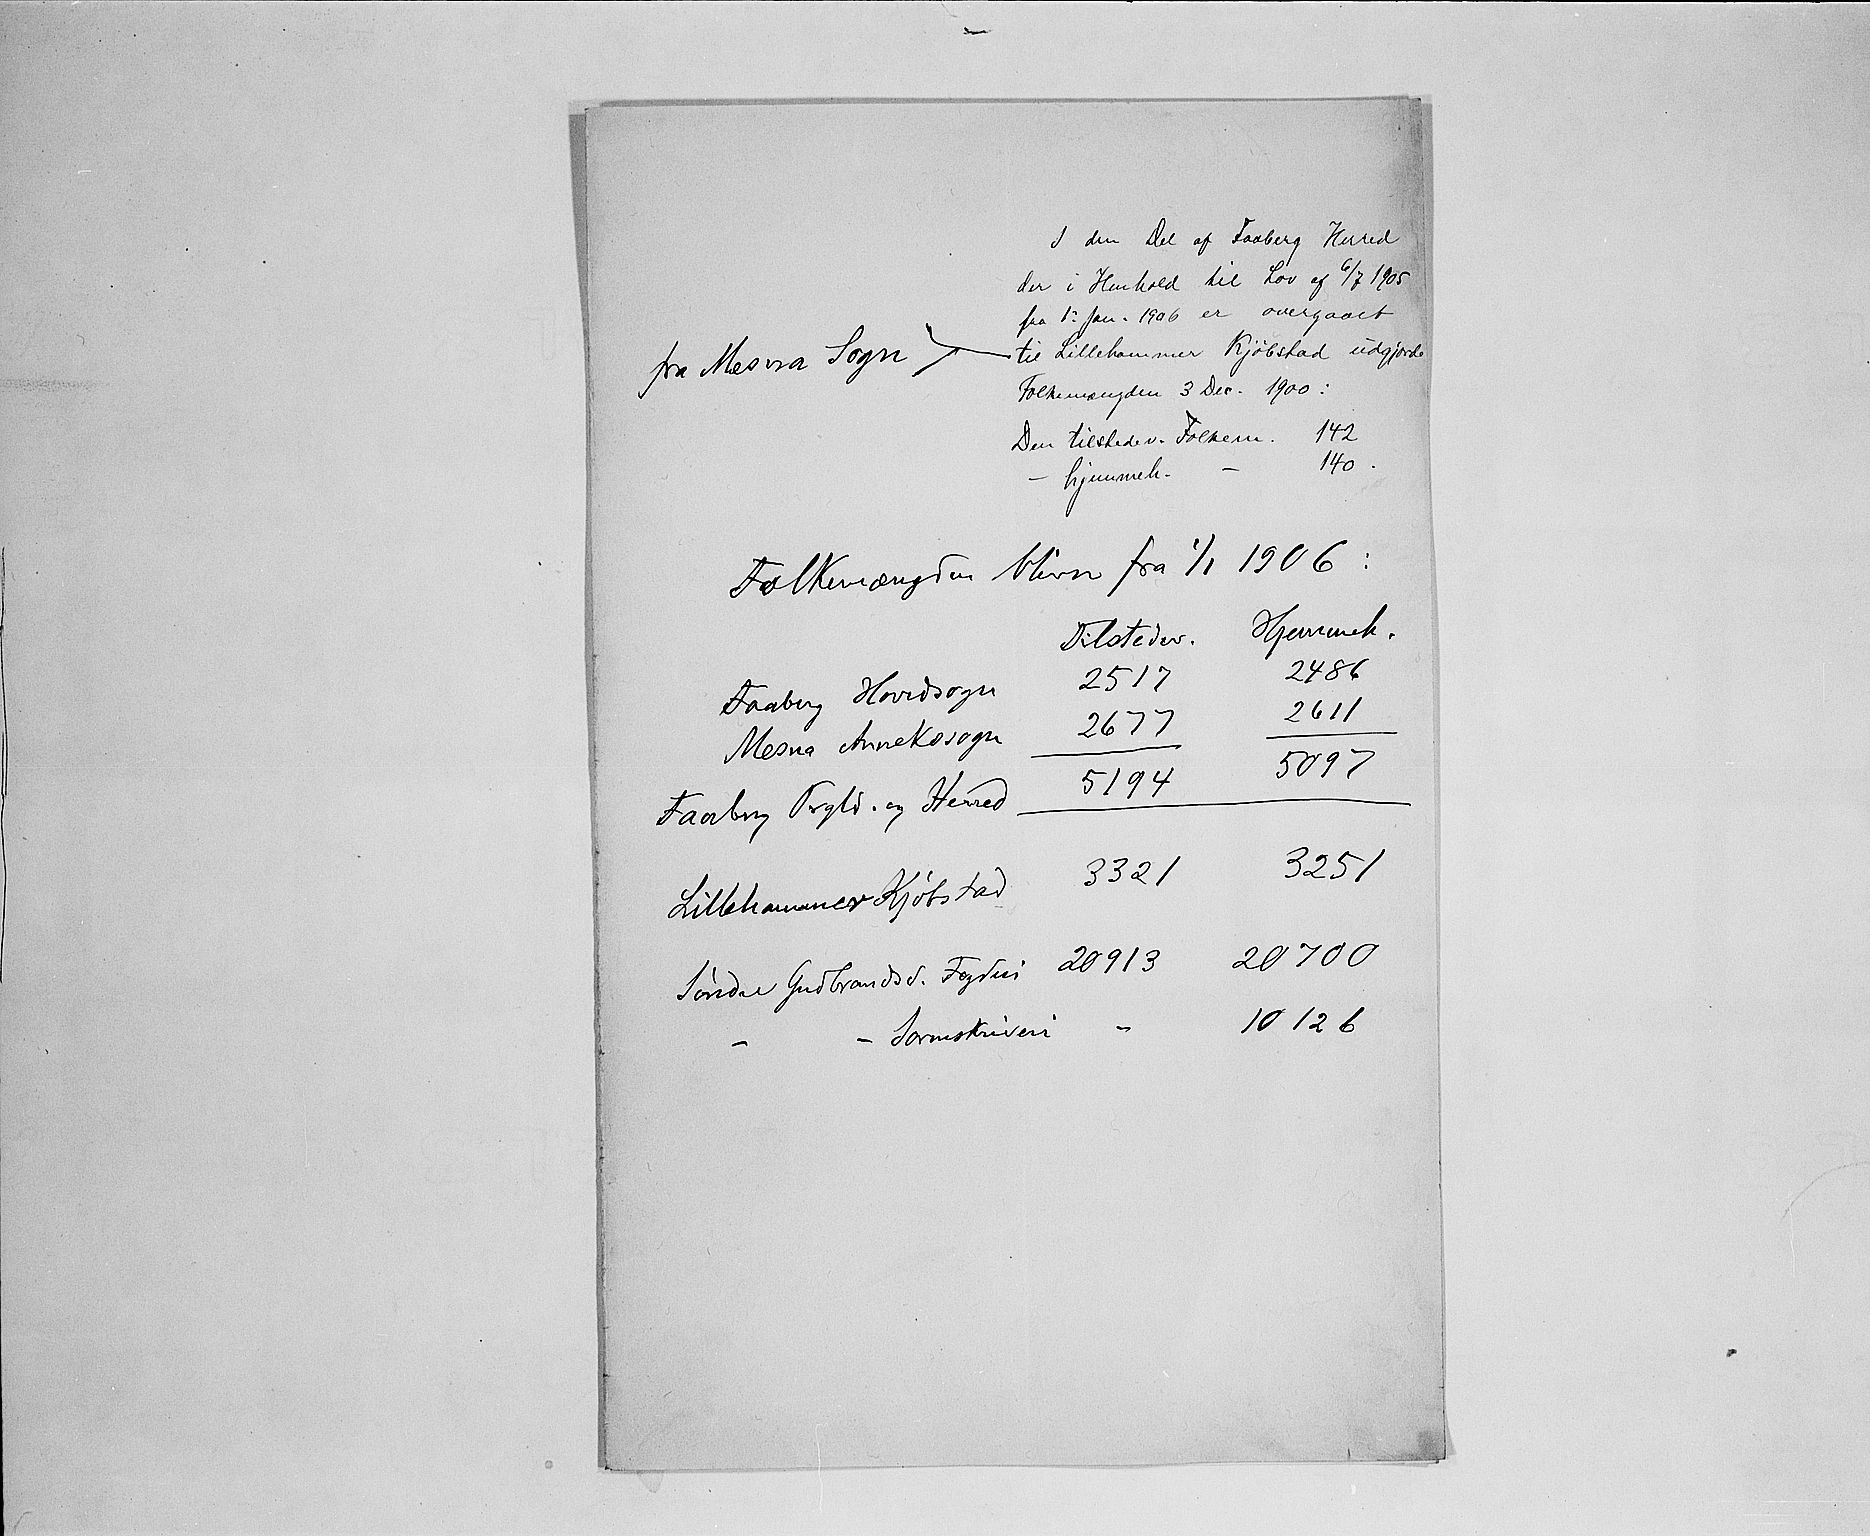 I den Del af Faaberg Herred
der i Henhold til Lov af 6/7 1905
fra 1ste Jan. 1906 er overgaaet
fra Mesna Sogn } til Lillehammer Kjöbstad udgjorde
Folkemængden 3 Dec. 1900:
Den tilstedev. Folkem. 142
– hjemmeh. – 140.
Folkemængden bliver fra 1/1 1906:
Tilstedev. Hjemmeh.
Faaberg Hovedsogn 2517 2486
Mesna Annekssogn 2677 2611
Faaberg Prgld. og Herred 5194 5097
Lillehammer Kjöbstad 3321 3251
Söndre Gudbrandsd. Fogderi 20913 20700
– – Sorenskriveri – 10126